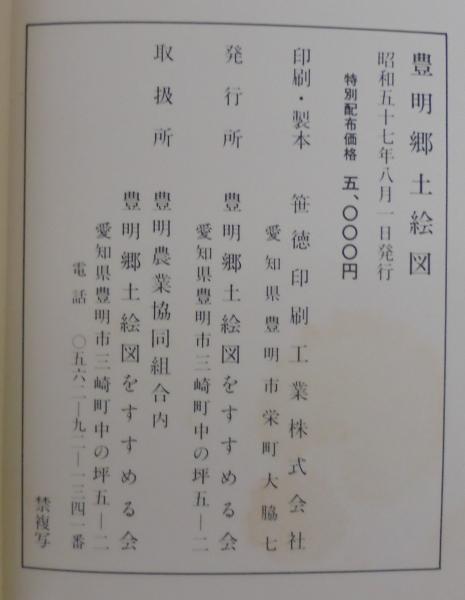 豊明郷土絵図
昭和五十七年八月一日発行
特別配布価格 五、〇〇〇円
印刷・製本 笹徳印刷工業株式会社
愛知県豊明市栄町大脇七
発行所 豊明郷土絵図をすすめる会
愛知県豊明市三崎町中の坪五―二
取扱所 豊明農業協同組合内
豊明郷土絵図をすすめる会
愛知県豊明市三崎町中の坪五―二
電話 〇五六二―九二―一三四一番
禁複写